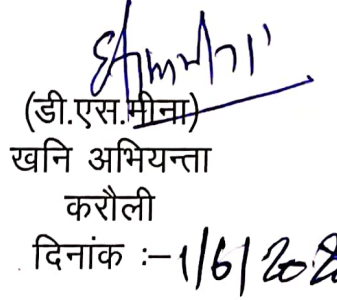 (डी.एस.मीना)
खनि अभियन्ता
करौली
दिनांक :–1/6/202